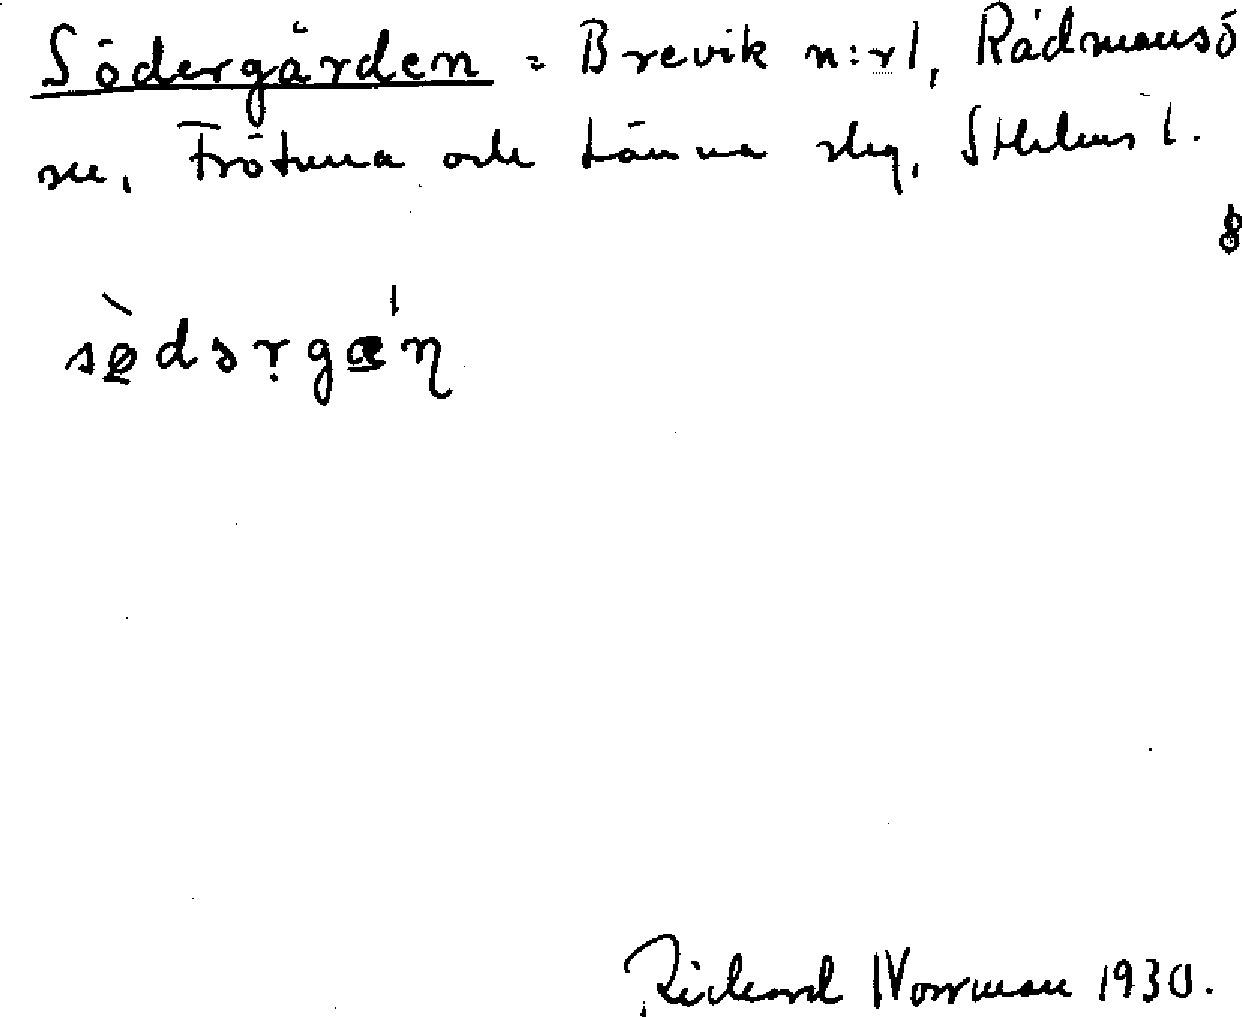 Södergården = Brevik n:r 1, Rådmansö
sn, Frötuna och Länna skg, Sthlms l.
8
Rickard Norrman 1930.